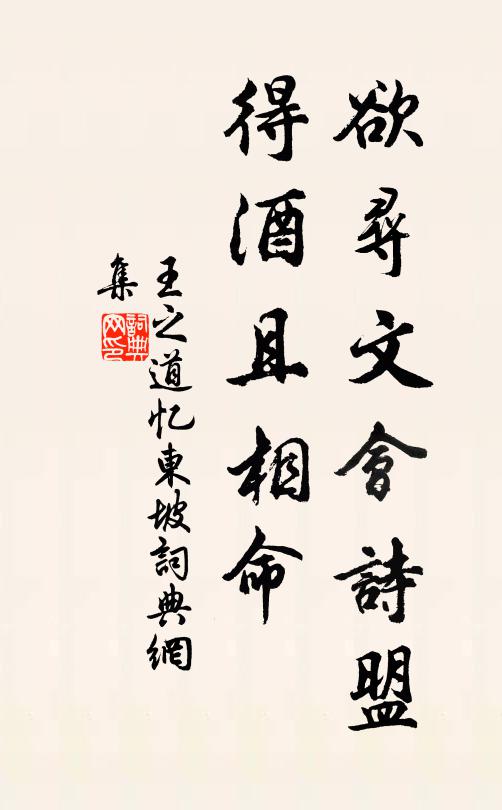 欲尋文會詩盟
得酒且相命
王之道忆東坡詞典網
集
詞典
网印